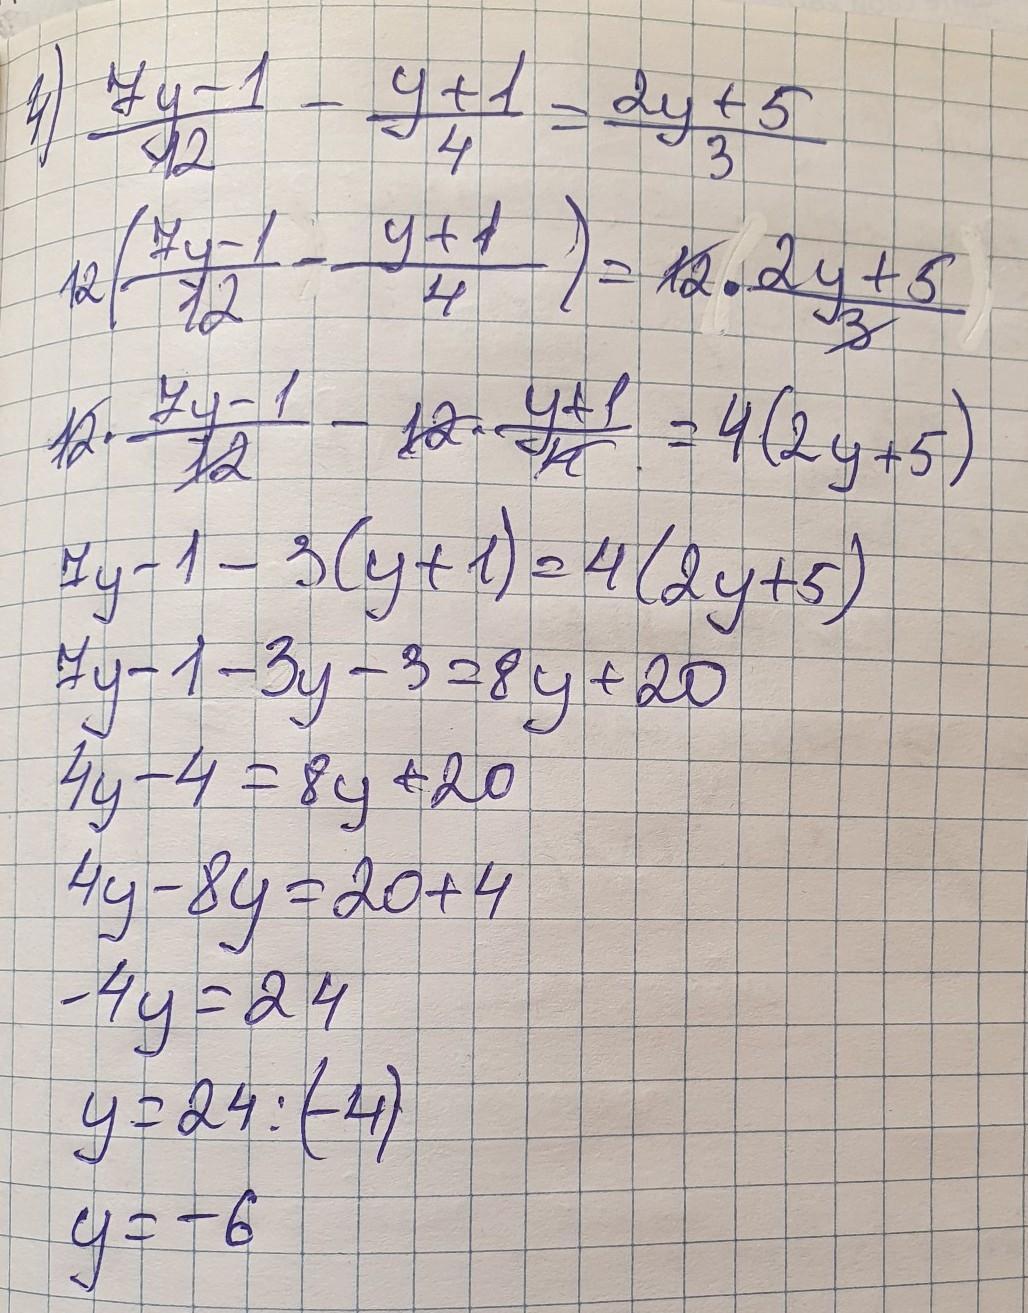 4) (7y-1)/12 - (y+1)/4 = (2y+5)/3
12((7y-1)/12 - (y+1)/4) = 12 · (2y+5)/3
12 · (7y-1)/12 - 12 · (y+1)/4 = 4(2y+5)
7y-1-3(y+1)=4(2y+5)
7y-1-3y-3=8y+20
4y-4=8y+20
4y-8y=20+4
-4y=24
y=24:(-4)
y=-6